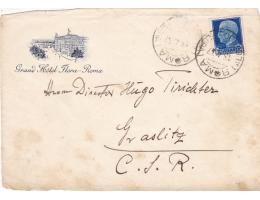 Grand Hotel Flora - Roma
ROMA
ROMA
Herrn Director Hugo Tirichter
Graslitz
C. S. R.